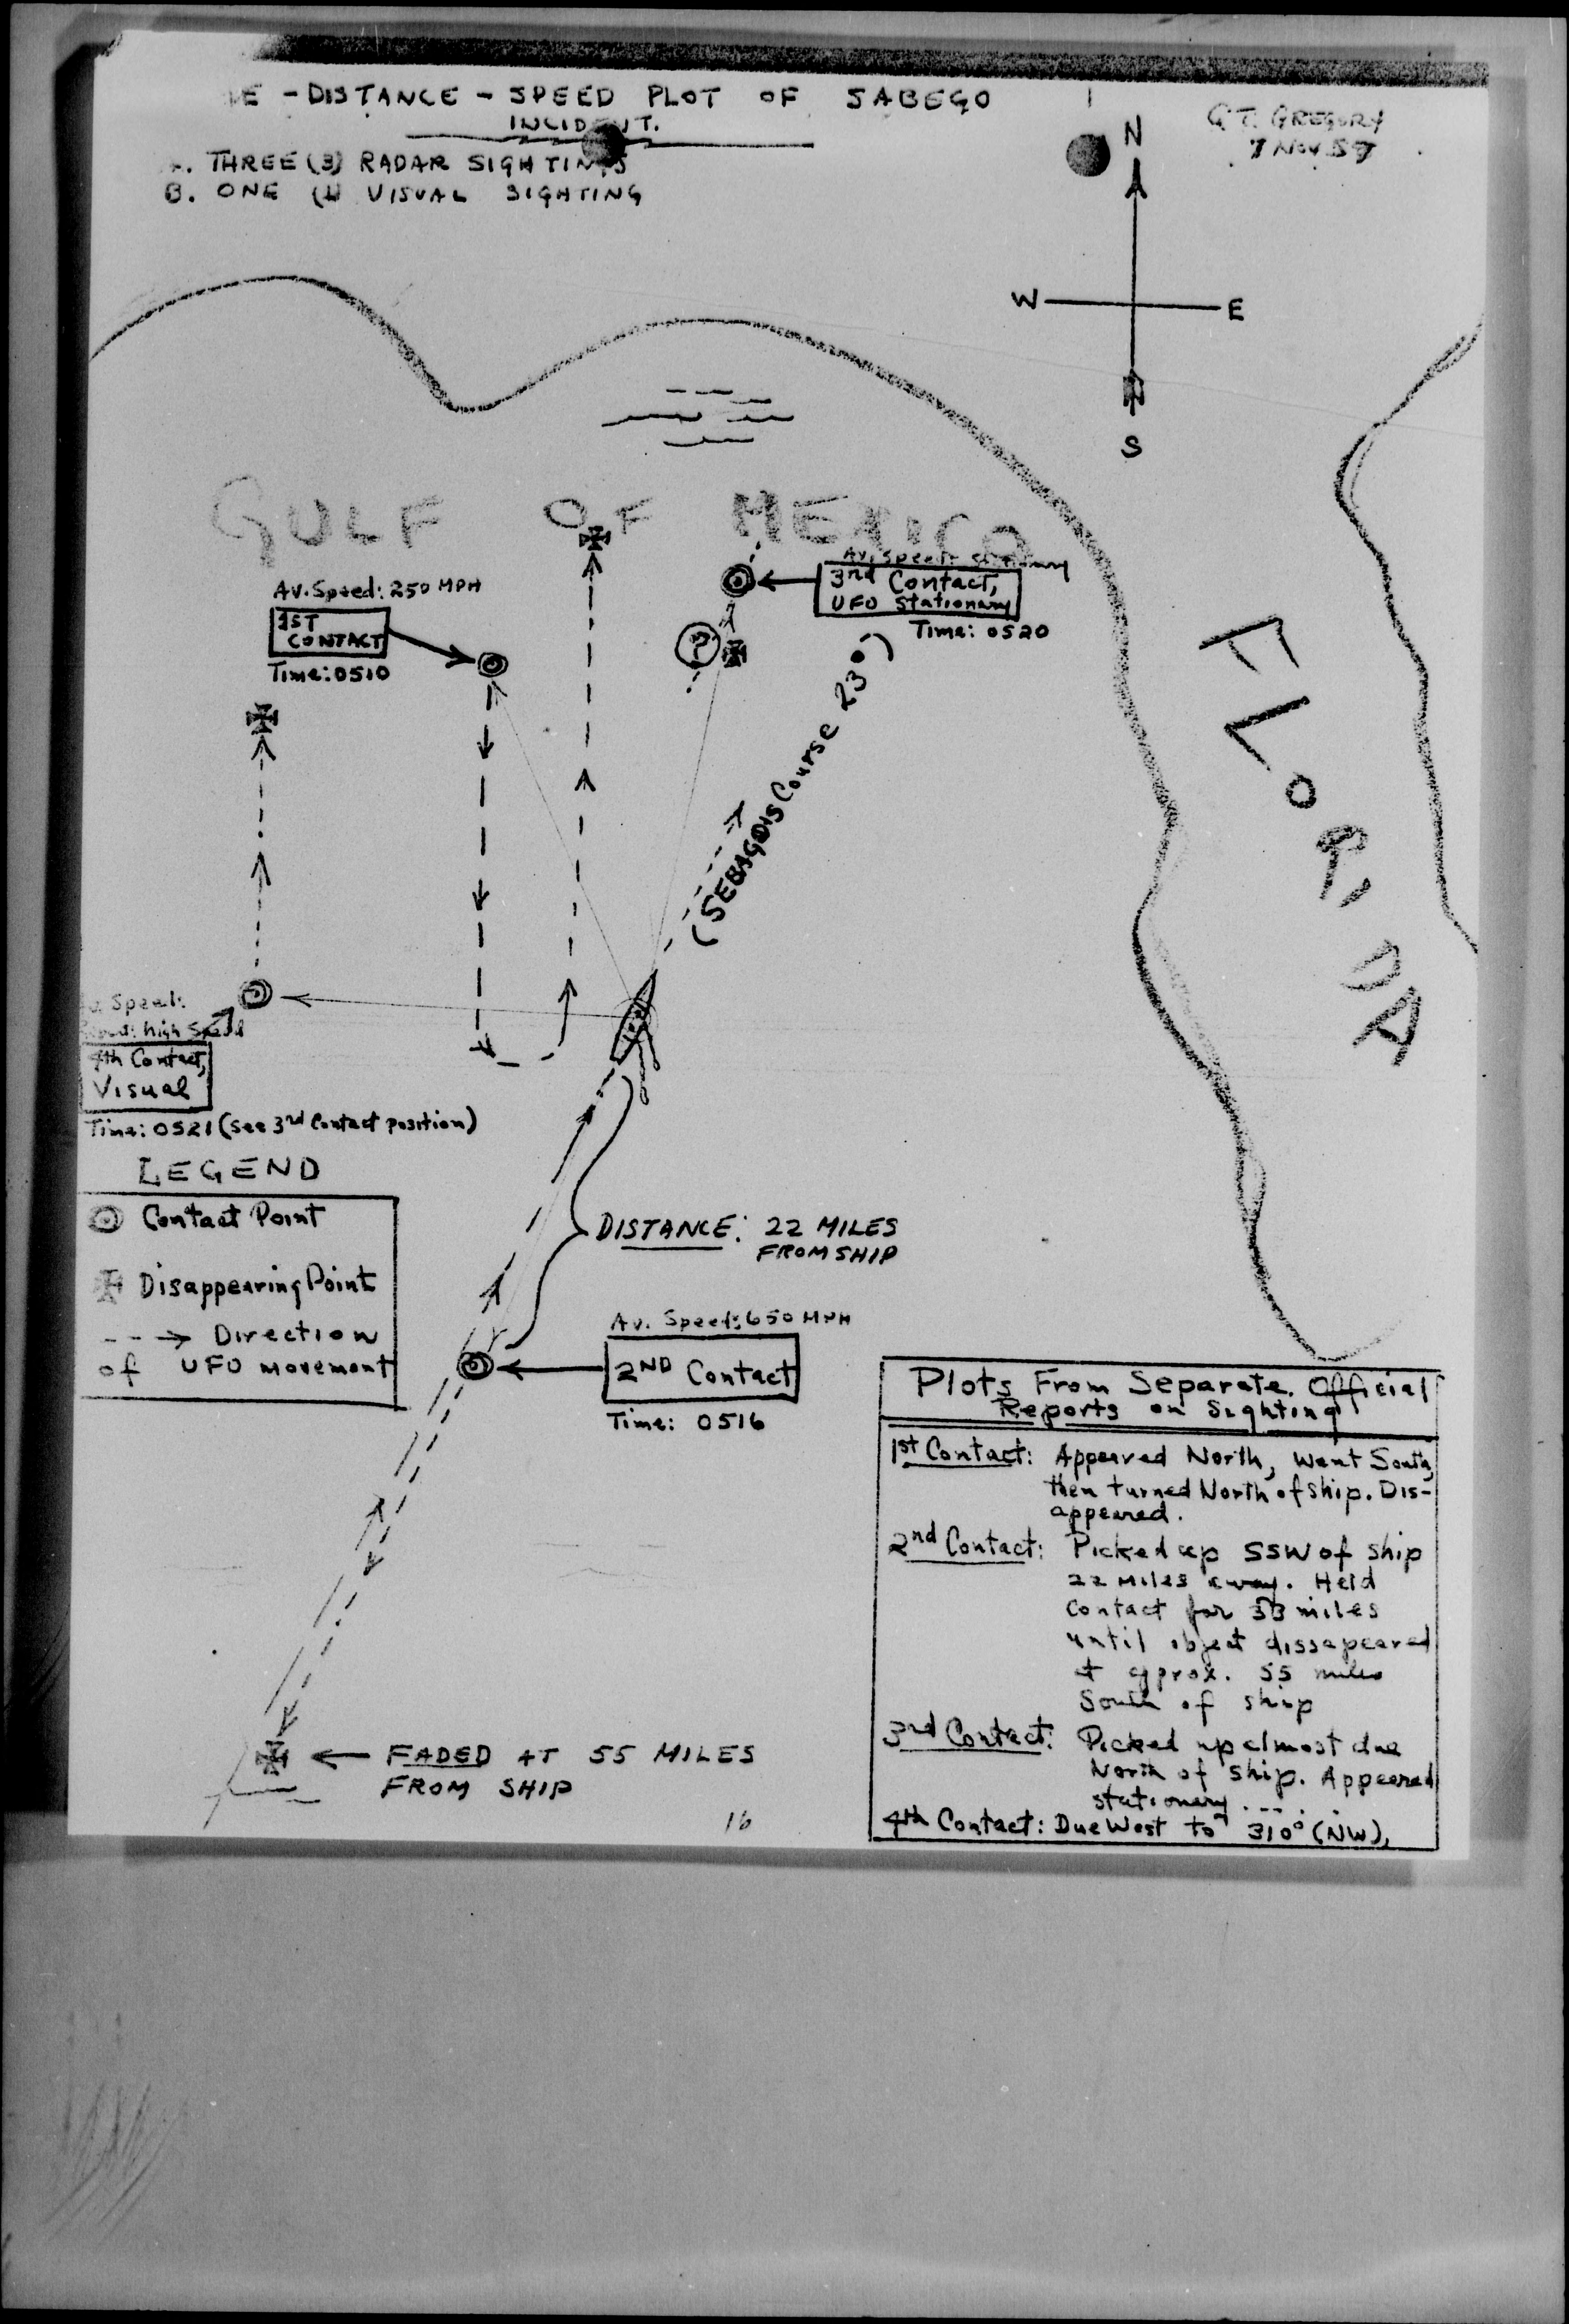 - DISTANCE - SPEED PLOT OF SABEGO
INCIDENT.
G.T. GREGORY
7 NOV 57
. THREE (3) RADAR SIGHTINGS
B. ONE (1) VISUAL SIGHTING
N
W
E
S
GULF OF MEXICO
FLORIDA
Av. Speed: 250 MPH
1ST
CONTACT
Time: 0510
Av. Speed: stationary
3rd Contact,
UFO Stationary
Time: 0520
?
(SEBAGO'S Course 23°)
Speed:
high Speed
4th Contact,
Visual
Time: 0521 (see 3rd Contact position)
LEGEND
Contact Point
Disappearing Point
Direction
of UFO movement
DISTANCE: 22 MILES
FROM SHIP
Av. Speed: 650 MPH
2ND Contact
Time: 0516
FADED AT 55 MILES
FROM SHIP
16
Plots From Separate Official
Reports on Sighting
1st Contact: Appeared North, Went South,
then turned North of ship. Dis-
appeared.
2nd Contact: Picked up SSW of ship
22 miles away. Held
Contact for 33 miles
until object dissapeared
at approx. 55 miles
South of ship
3rd Contact: Picked up almost due
North of ship. Appeared
stationary . -- . .
4th Contact: Due West to 310° (NW).